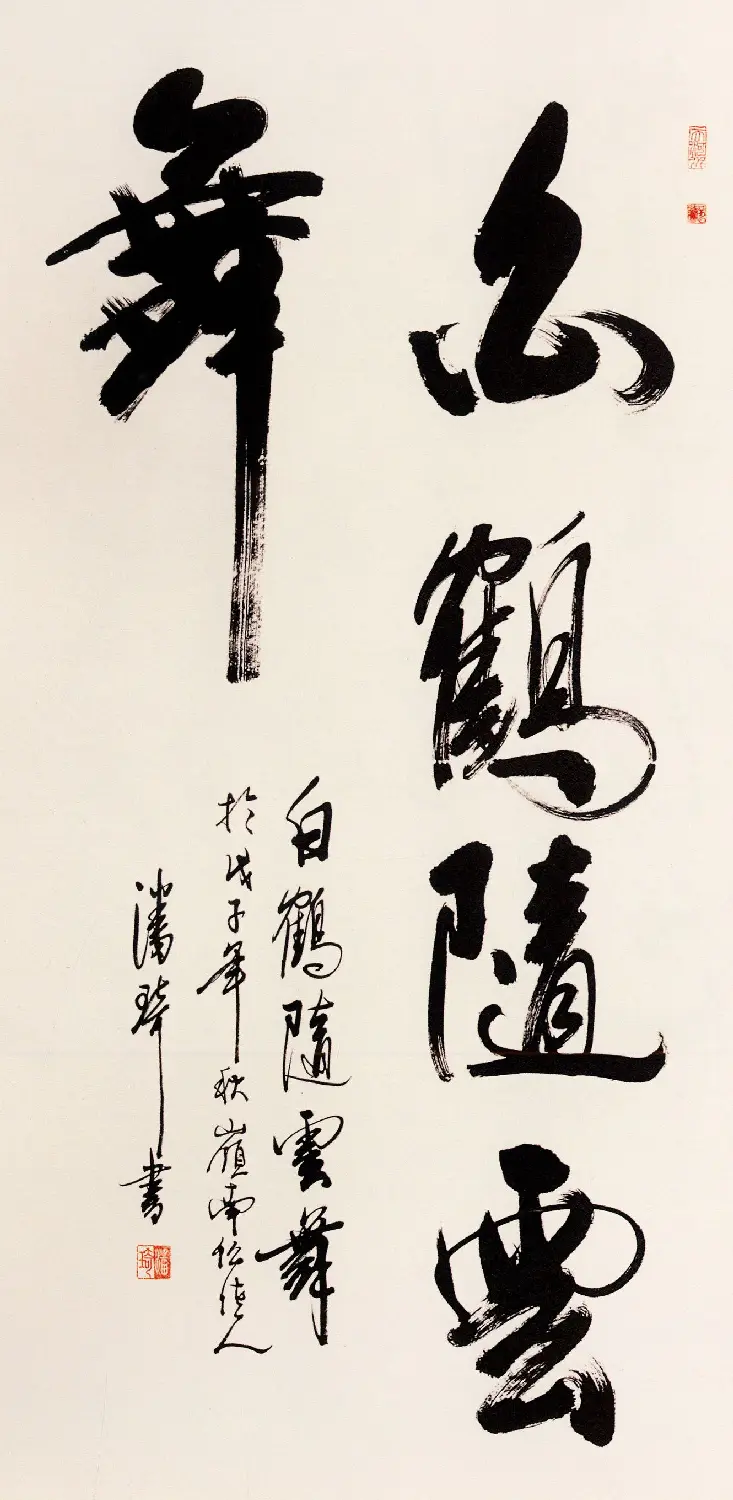 白鶴隨雲
舞
白鶴隨雲舞
於戊子年秋嶺南人
潘琦書
潘琦